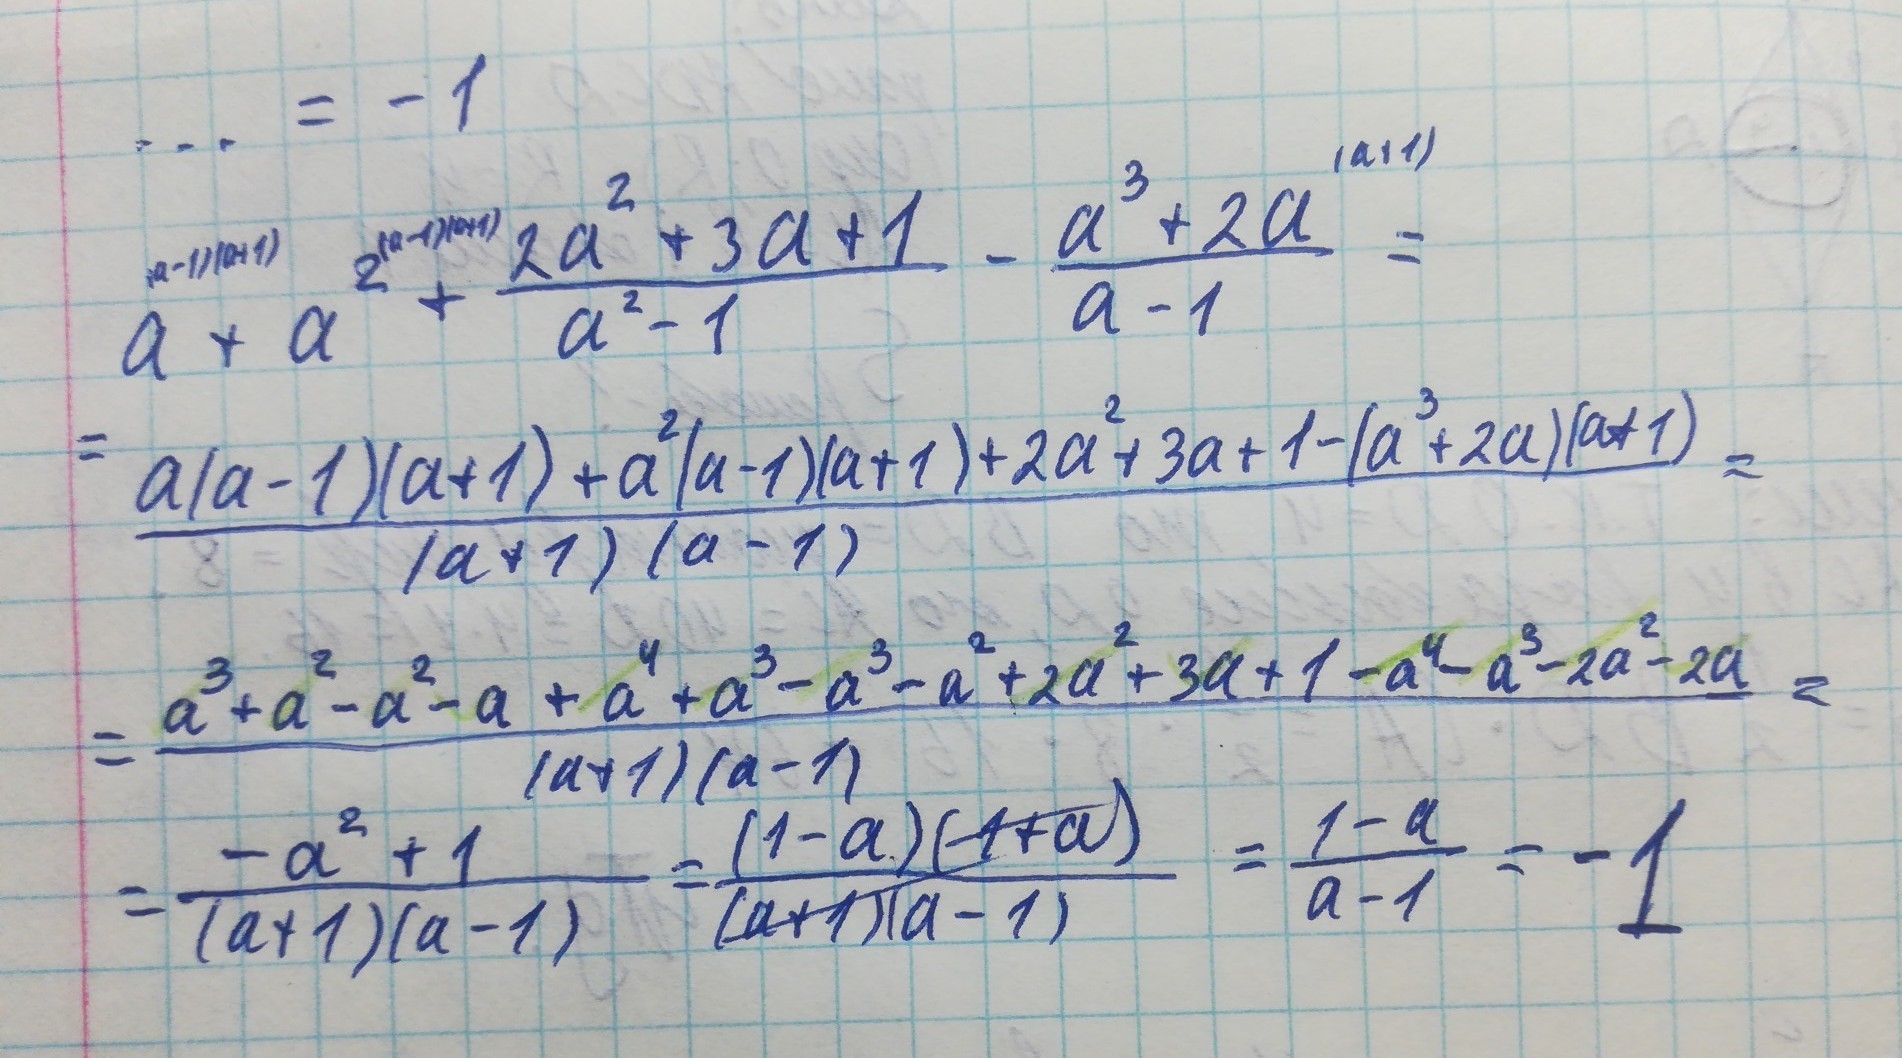 ... = -1
a^{(a-1)(a+1)} + a^2^{(a-1)(a+1)} + \frac{2a^2+3a+1}{a^2-1} - \frac{a^3+2a}{a-1}^{(a+1)} =
= \frac{a(a-1)(a+1)+a^2(a-1)(a+1)+2a^2+3a+1-(a^3+2a)(a+1)}{(a+1)(a-1)} =
= \frac{a^3+a^2-a^2-a+a^4+a^3-a^3-a^2+2a^2+3a+1-a^4-a^3-2a^2-2a}{(a+1)(a-1)} =
= \frac{-a^2+1}{(a+1)(a-1)} = \frac{(1-a)(1+a)}{(a+1)(a-1)} = \frac{1-a}{a-1} = -1